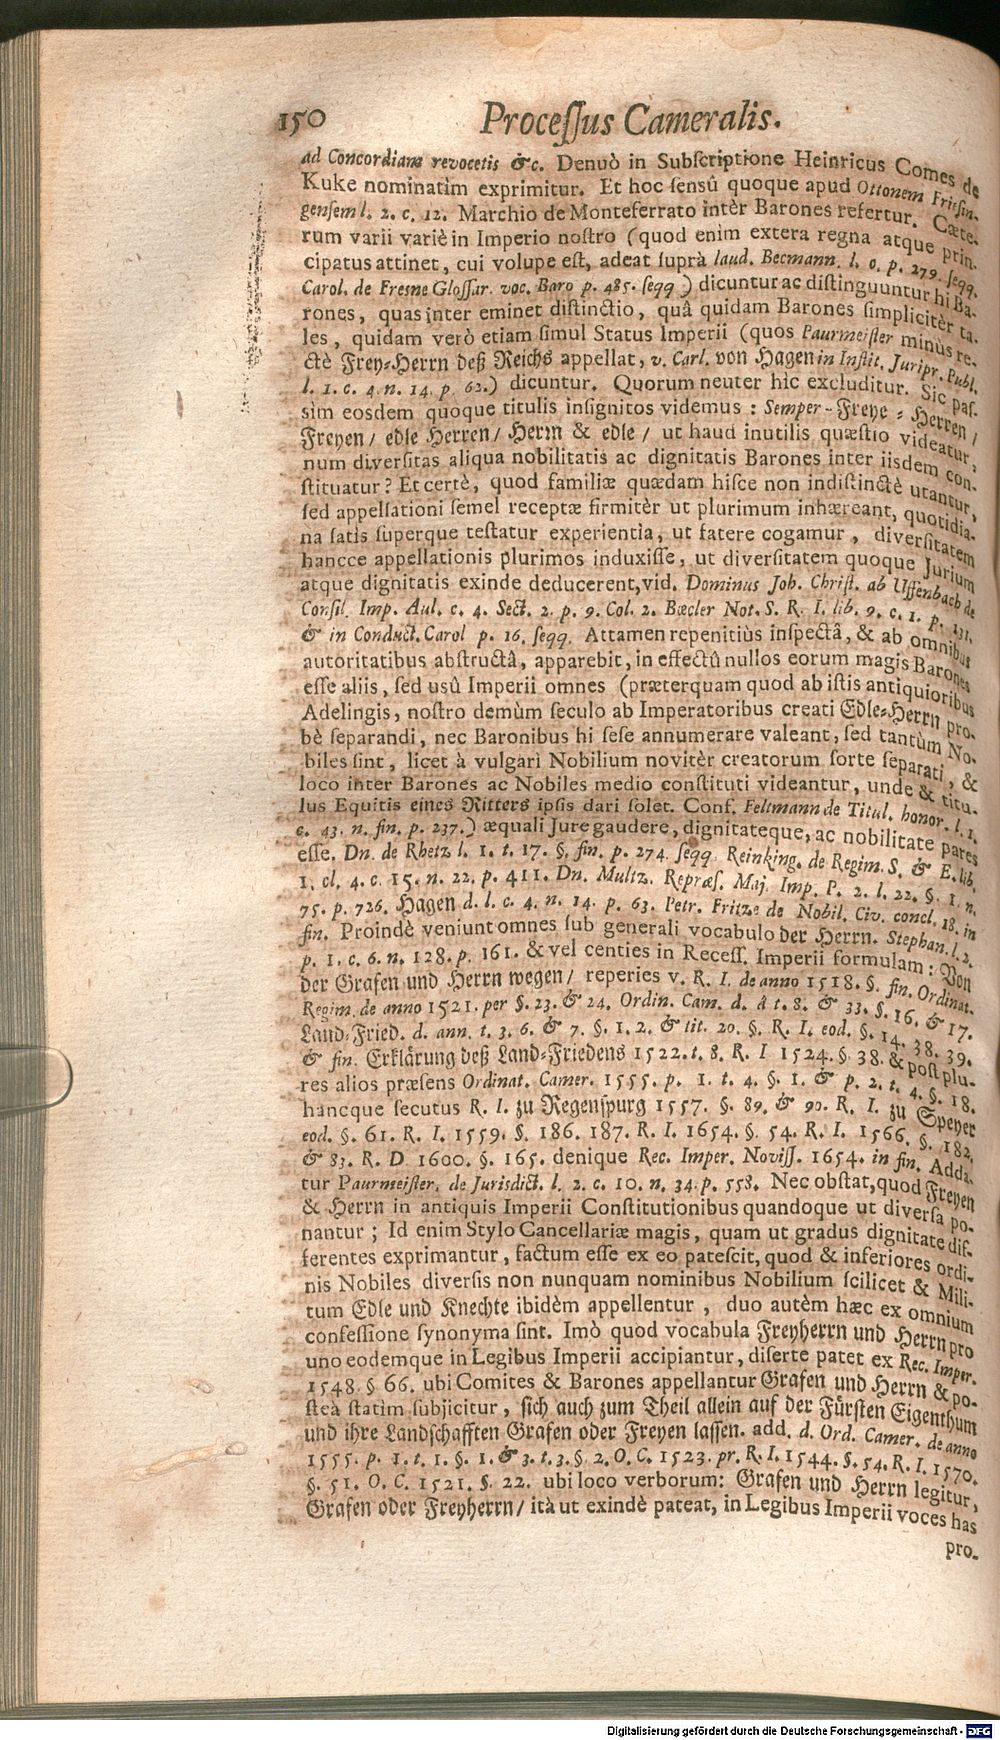 150 Processus Cameralis.
ad Concordiam revocetis &c. Denuò in Subscriptione Heinricus Comes de
Kuke nominatim exprimitur. Et hoc sensû quoque apud Ottonem Frising-
gensem l. 2. c. 12. Marchio de Monteferrato intèr Barones refertur. Cæte-
rum varii variè in Imperio nostro (quod enim extera regna atque prin-
cipatus attinet, cui volupe est, adeat suprà laud. Becmann. l. c. p. 279. seqq.
Carol. de Fresne Glossar. voc. Baro p. 485. seqq.) dicuntur ac distinguuntur hi Ba-
rones, quas inter eminet distinctio, quâ quidam Barones simplicitèr ta-
les, quidam verò etiam simul Status Imperii (quos Paurmeister minùs re-
ctè Frey-Herrn deß Reichs appellat, v. Carl. von Hagen in Instit. Juripr. Publ.
l. 1. c. 4. n. 14. p. 62.) dicuntur. Quorum neuter hìc excluditur. Sic pas-
sim eosdem quoque titulis insignitos videmus: Semper-Freye-Herren/
Freyen/ edle Herren/ Herrn & edle/ ut haud inutilis quæstio videatur,
num diversitas aliqua nobilitatis ac dignitatis Barones inter iisdem con-
stituatur? Et certè, quod familiæ quædam hisce non indistinctè utantur,
sed appellationi semel receptæ firmitèr ut plurimum inhæreant, quotidia-
na satis superque testatur experientia, ut fatere cogamur, diversitatem
hancce appellationis plurimos induxisse, ut diversitatem quoque Jurium
atque dignitatis exinde deducerent, vid. Dominus Joh. Christ. ab Uffenbach de
Consil. Imp. Aul. c. 4. Sect. 2. p. 9. Col. 2. Bæcler Not. S. R. I. lib. 9. c. 1. p. 131.
& in Conduct. Carol p. 16. seqq. Attamen repenitiùs inspectâ, & ab omnibus
autoritatibus abstructâ, apparebit, in effectû nullos eorum magis Barones
esse aliis, sed usû Imperii omnes (præterquam quod ab istis antiquioribus
Adelingis, nostro demùm seculo ab Imperatoribus creati Edle-Herrn pro-
bè separandi, nec Baronibus hi sese annumerare valeant, sed tantùm No-
biles sint, licet à vulgari Nobilium novitèr creatorum sorte separati, &
loco inter Barones ac Nobiles medio constituti videantur, unde & titu-
lus Equitis eines Ritters ipsis dari solet. Conf. Feltmann de Titul. honor. l. 1.
c. 43. n. fin. p. 237.) æquali Jure gaudere, dignitateque, ac nobilitate pares
esse. Dn. de Rhetz l. 1. t. 17. §. fin. p. 274. seqq. Reinking. de Regim. S. & E. lib.
1. cl. 4. c. 15. n. 22. p. 411. Dn. Multz. Repræs. Maj. Imp. P. 2. l. 22. §. 1. n.
75. p. 726. Hagen d. l. c. 4. n. 14. p. 63. Petr. Fritze de Nobil. Civ. concl. 18. in
fin. Proindè veniunt omnes sub generali vocabulo der Herrn. Stephan. l. 2.
p. 1. c. 6. n. 128. p. 161. & vel centies in Recess. Imperii formulam: Von
der Grafen und Herrn wegen/ reperies v. R. I. de anno 1518. §. fin. Ordinat.
Regim. de anno 1521. per §. 23. & 24. Ordin. Cam. d. â t. 8. & 33. §. 16. & 17.
Land-Fried. d. ann. t. 3. 6. & 7. §. 1. 2. & tit. 20. §. R. I. eod. §. 14. 38. 39.
& fin. Erklärung deß Land-Friedens 1522. t. 8. R. I 1524. §. 38. & post plu-
res alios præsens Ordinat. Camer. 1555. p. 1. t. 4. §. 1. & p. 2. t. 4. §. 18.
hancque secutus R. I. zu Regenspurg 1557. §. 89. & 90. R. I. zu Speyer
eod. §. 61. R. I. 1559. §. 186. 187. R. I. 1654. §. 54. R. I. 1566. §. 182.
& 83. R. D. 1600. §. 165. denique Rec. Imper. Noviss. 1654. in fin. Adda-
tur Paurmeister. de Jurisdict. l. 2. c. 10. n. 34. p. 558. Nec obstat, quod Freyen
& Herrn in antiquis Imperii Constitutionibus quandoque ut diversa po-
nantur; Id enim Stylo Cancellariæ magis, quam ut gradus dignitate dif-
ferentes exprimantur, factum esse ex eo patescit, quod & inferiores ordi-
nis Nobiles diversis non nunquam nominibus Nobilium scilicet & Mili-
tum Edle und Knechte ibidèm appellentur, duo autèm hæc ex omnium
confessione synonyma sint. Imò quod vocabula Freyherrn und Herrn pro
uno eodemque in Legibus Imperii accipiantur, diserte patet ex Rec. Imper.
1548. § 66. ubi Comites & Barones appellantur Grafen und Herrn & po-
steà statim subjicitur, sich auch zum Theil allein auf der Fürsten Eigenthum
und ihre Landschafften Grafen oder Freyen lassen. add. d. Ord. Camer. de anno
1555. p. 1. t. 1. §. 1. & 3. t. 3. §. 2. O. C. 1523. pr. R. I. 1544. §. 54. R. I. 1570.
§. 51. O. C. 1521. §. 22. ubi loco verborum: Grafen und Herrn legitur,
Grafen oder Freyherrn/ ità ut exindè pateat, in Legibus Imperii voces has
pro-
Digitalisierung gefördert durch die Deutsche Forschungsgemeinschaft - DFG